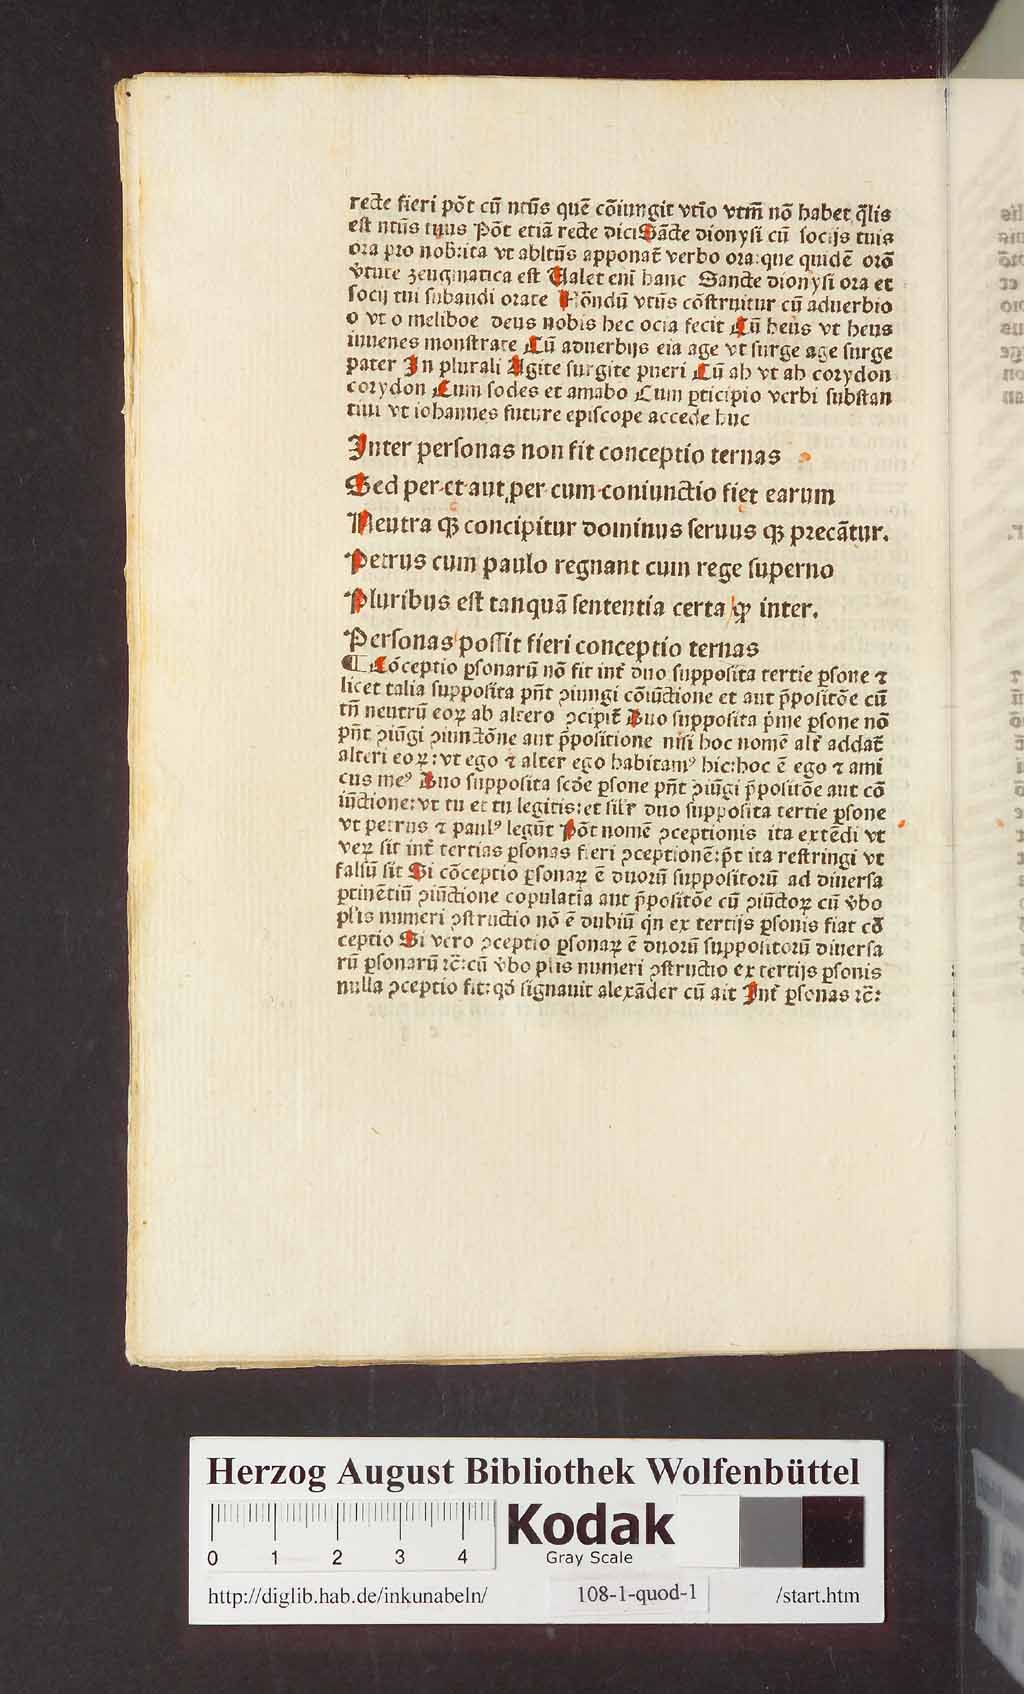 recte fieri põt cũ nt̃us quẽ cõiungit vtĩo vtm̃ nõ habet q̃lis
est nt̃us tuus Põt etiã recte dici Sãcte dionysi cũ socijs tuis
ora pro nob:ita vt ablt̃us apponat̃ verbo ora:que quidẽ orõ
v̾tute zeugmatica est Ualet eni hanc Sancte dionysi ora et
socij tui subaudi orate Põndũ vt̃us cõstruitur cũ aduerbio
o vt o meliboe deus nobis hec ocia fecit Cũ heus vt heus
iuuenes monstrate Cũ aduerbijs eia age vt surge age surge
pater In plurali Agite surgite pueri Cũ ah vt ah corydon
corydon Cum sodes et amabo Cum ꝑticipio verbi substan
tiui vt iohannes future episcope accede huc
Inter personas non fit conceptio ternas
Sed per et aut per cum coniunctio fiet earum
Neutra qꝫ concipitur dominus seruus qꝫ precãtur.
Petrus cum paulo regnant cum rege superno
Pluribus est tanquã sententia certa ꝙ inter.
Personas possit fieri conceptio ternas
¶ Cõceptio ꝑsonarũ nõ fit int̃ duo supposita tertie ꝑsone ⁊
licet talia supposita pñt ꝯiungi cõiũctione et aut p̃positõe cũ
tñ neutrũ eoꝝ ab altero ꝯcipit̃ Duo supposita p̃me ꝑsone nõ
pñt ꝯiũgi ꝯiunctõne aut p̃positione nisi hoc nomẽ alt̃ addat̃
alteri eoꝝ:vt ego ⁊ alter ego habitamꝰ hic:hoc ẽ ego ⁊ ami
cus meꝰ Duo supposita scd̃e ꝑsone pñt ꝯiũgi p̃positõe aut cõ
iũctione:vt tu et tu legitis:et sil̃r duo supposita tertie ꝑsone
vt petrus ⁊ paulꝰ legũt Põt nomẽ ꝯceptionis ita extẽdi vt
veꝝ sit int̃ tertias ꝑsonas fieri ꝯceptionẽ:p̃t ita restringi vt
falsũ sit Si cõceptio ꝑsonaꝝ ẽ duorũ suppositorũ ad diuersa
ꝑtinẽtiũ ꝯiũctione copulatĩa aut p̃positõe cũ ꝯiũctoꝝ cũ v̾bo
pl̃is numeri ꝯstructio nõ ẽ dubiũ q̃n ex tertijs ꝑsonis fiat cõ
ceptio Si vero ꝯceptio ꝑsonaꝝ ẽ duorũ suppositorũ diuersa
rũ ꝑsonarũ ⁊c̃:cũ v̾bo pl̃is numeri ꝯstructio ex tertijs ꝑsonis
nulla ꝯceptio fit:qd̃ signauit alexãder cũ ait Int̃ ꝑsonas ⁊c̃:
Herzog August Bibliothek Wolfenbüttel
0 1 2 3 4
Kodak
Gray Scale
http://diglib.hab.de/inkunabeln/ 108-1-quod-1 /start.htm